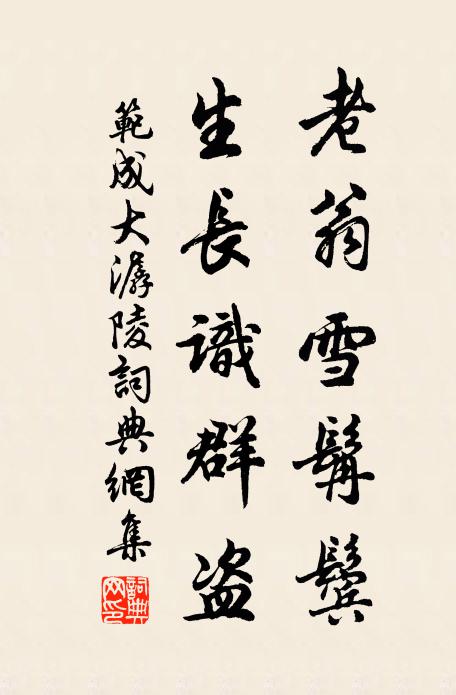 老翁雪髯鬢
生長識群盜
範成大潺陵詞典網集
詞典網印